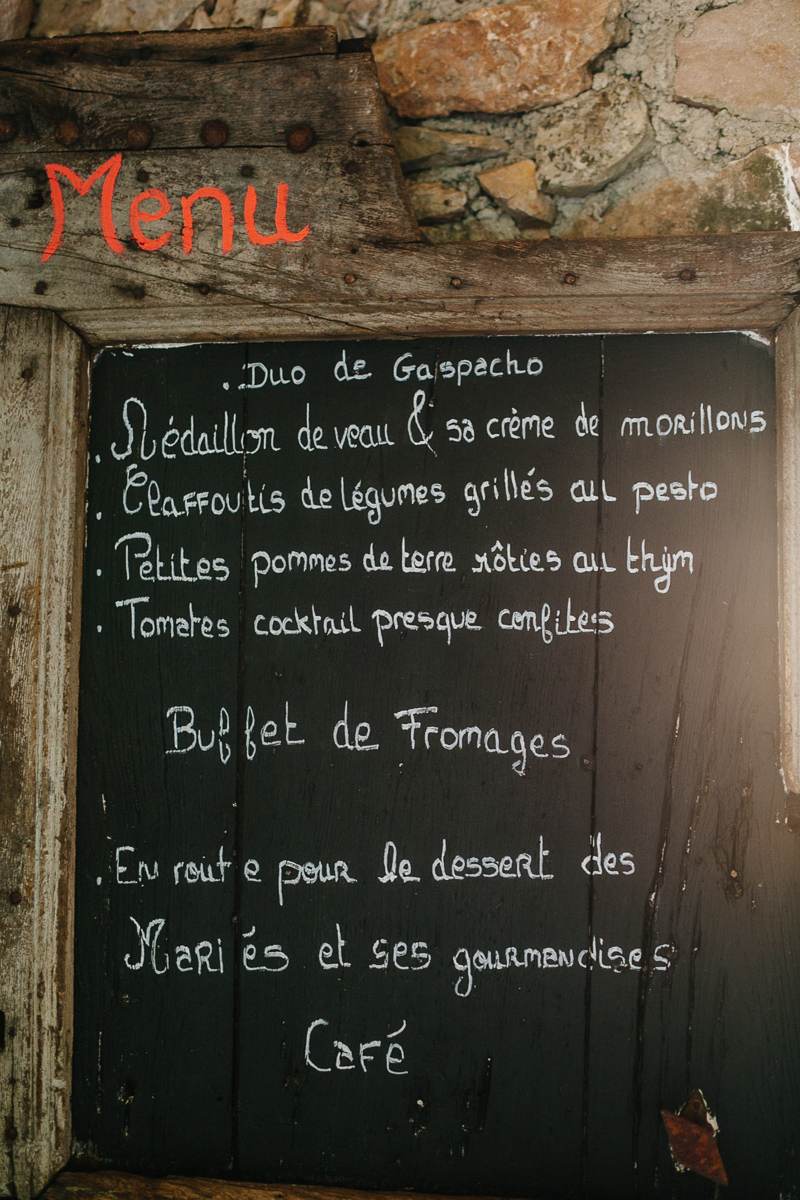 Menu
. Duo de Gaspacho
. Médaillon de veau & sa crème de morillons
. Claffoutis de légumes grillés au pesto
. Petites pommes de terre rôties au thym
. Tomates cocktail presque confites
Buffet de Fromages
. En route pour le dessert des
Mariés et ses gourmandises
Café